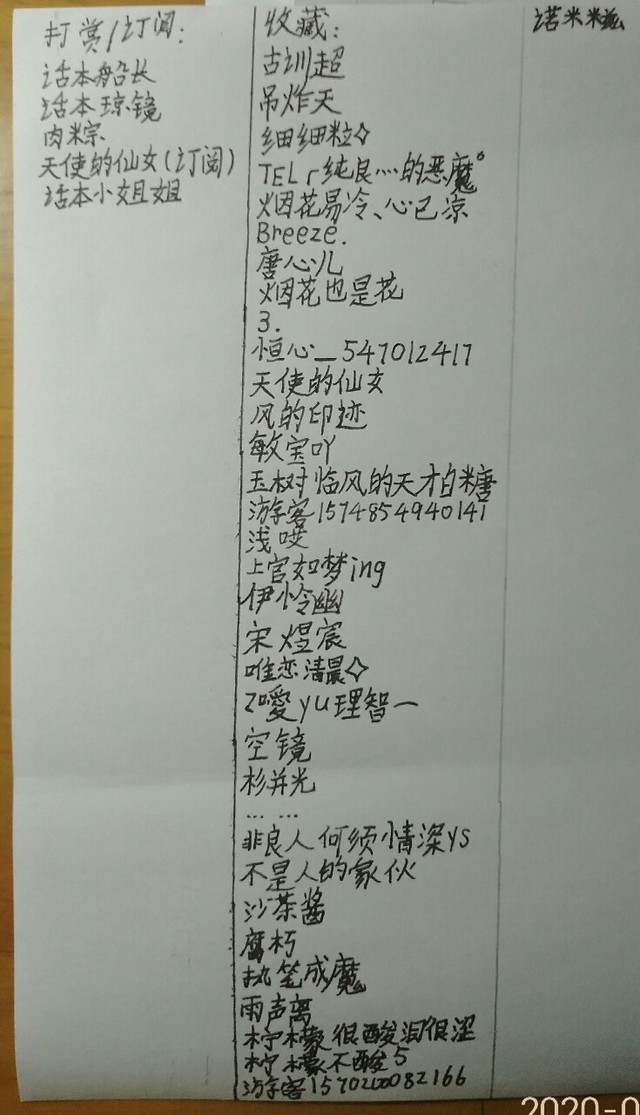 打赏/订阅:
话本船长
话本琼镜
肉粽
天使的仙女(订阅)
话本小姐姐
收藏:
古训超
吊炸天
细细粒◇
TEL r纯良灬的恶魔°
烟花易冷、心已凉
Breeze.
唐心儿
烟花也是花
3.
恒心_547012417
天使的仙女
风的印迹
敏宝吖
玉树临风的天才白糖
游客1574854940141
浅唉
上官如梦ing
伊怜幽
宋煜宸
唯恋清晨◇
Z噯yu理智一
空镜
杉并光
……
非良人何须情深ys
不是人的家伙
沙茶酱
腐朽
执笔成魔
雨声离
柠檬很酸泪很涩
柠檬不酸5
游客1570200082166
诺米粒
2020-0